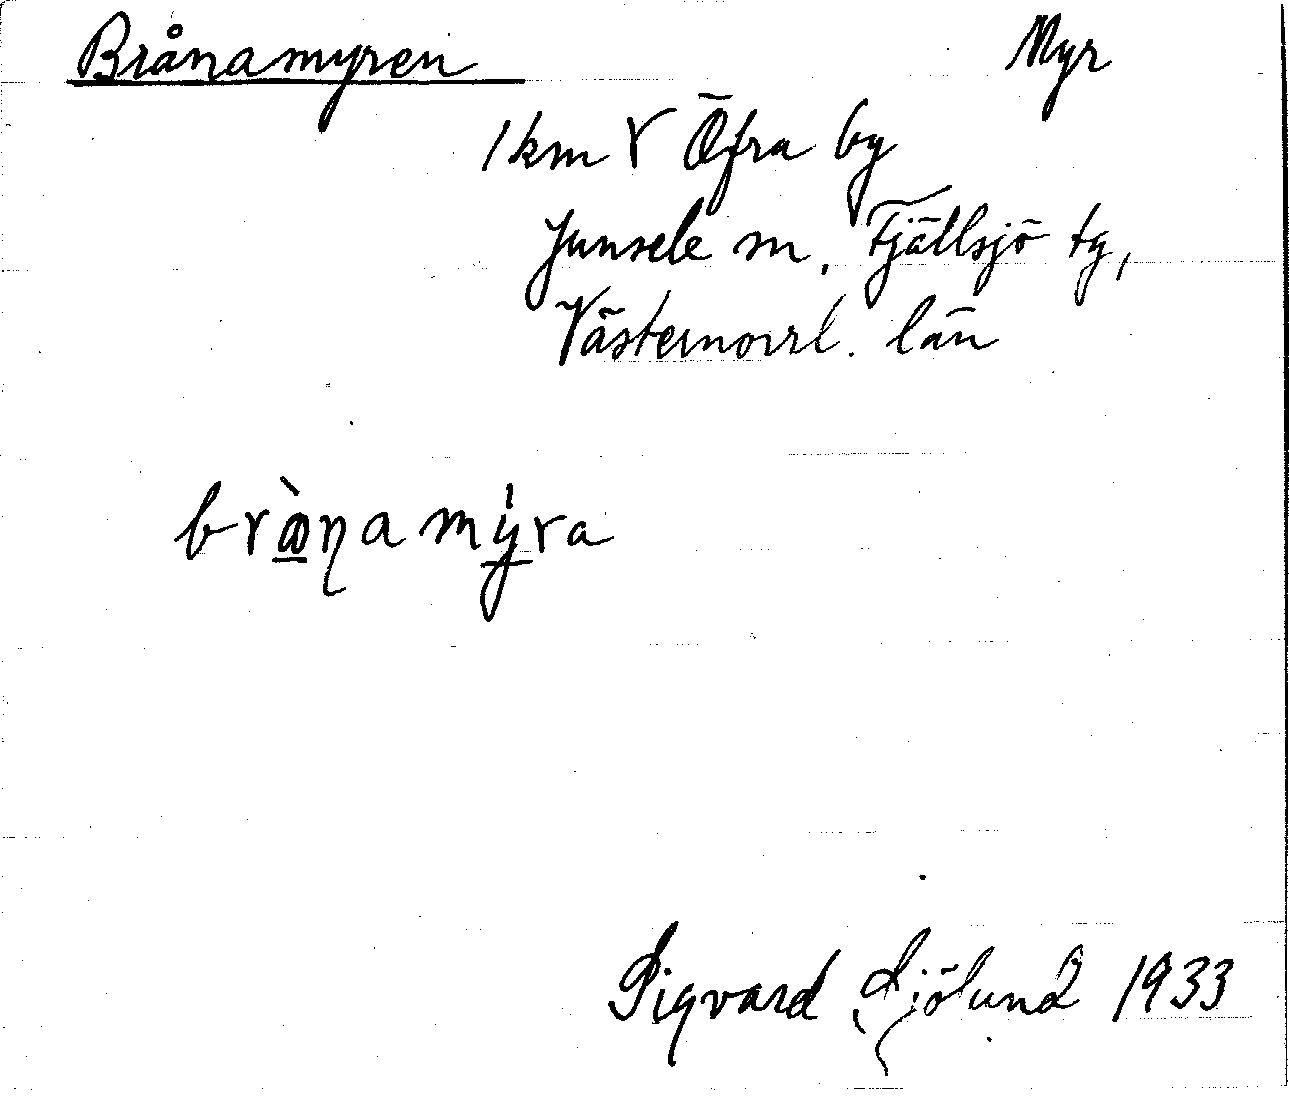 Brånamyren Myr
1 km V Öfra by
Junsele sn, Fjällsjö tg,
Västernorrl. län
brὼ̲ŋa my̲̍ra
Sigvard Sjölund 1933